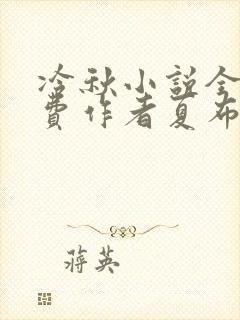 冷秋小说全
费作者夏布
蒋英